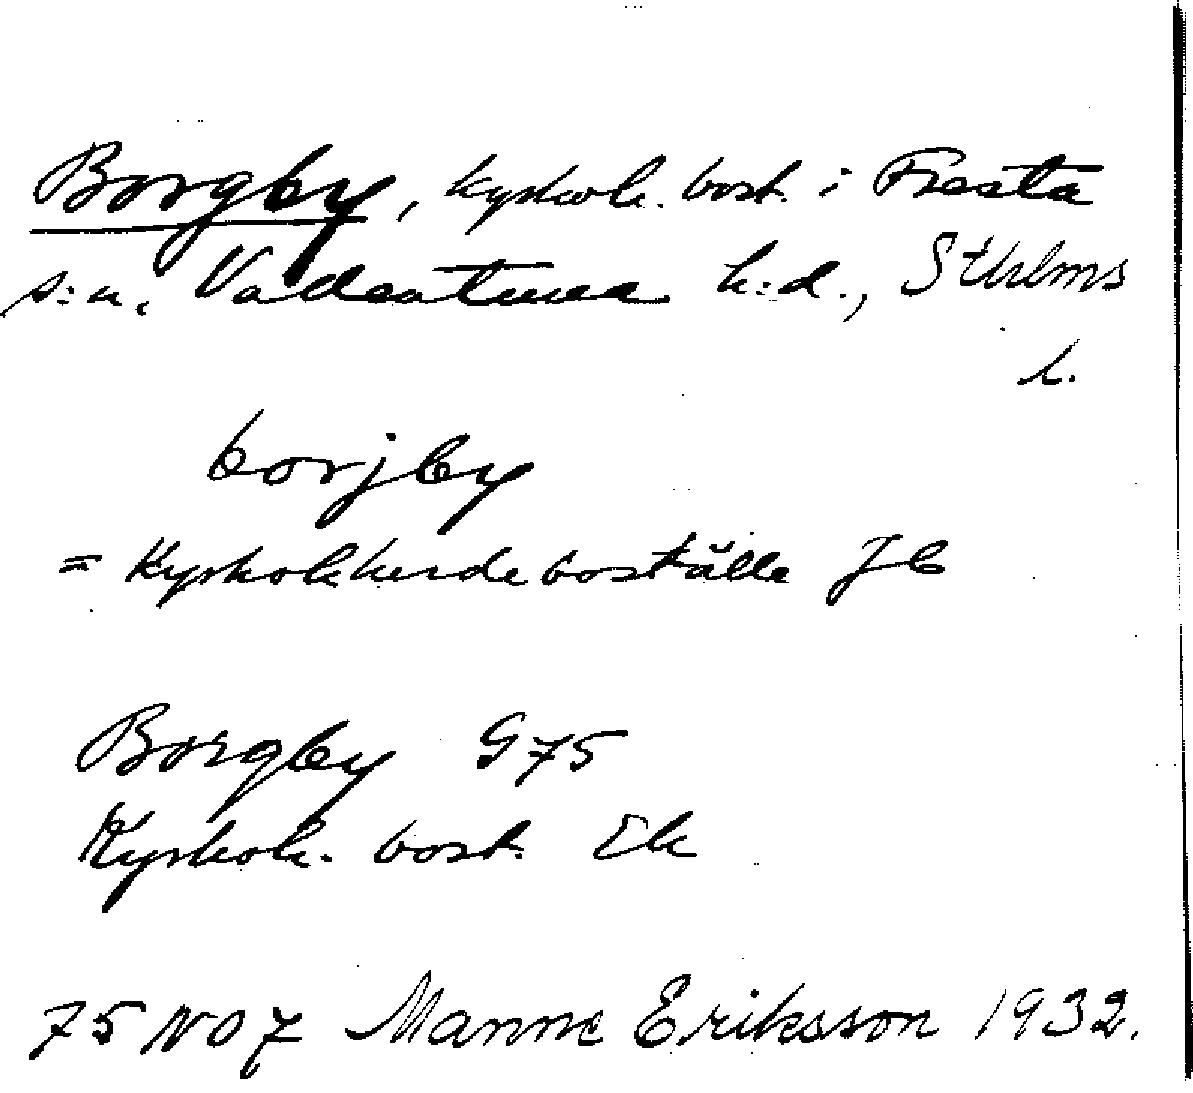 Borgby, kyrkoh. bost. i Fresta
s:n, Vallentuna h:d., Sthlms
l.
borjby
= Kyrkoherdeboställe Jb
Borgby G75
Kyrkoh. bost. Ek
75 NO 7 Manne Eriksson 1932.